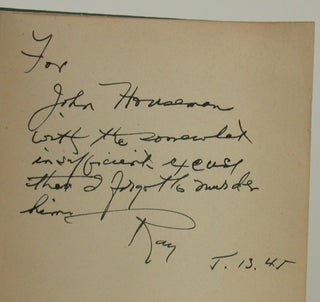 For
John Houseman
with the somewhat
insufficient excuse
that I forgot to murder
him
Ray
J. 13. 45